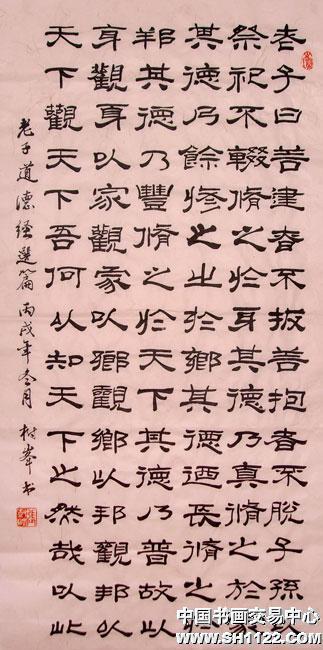 老子曰善建者不拔善抱者不脱子孫以
祭祀不輟脩之於身其德乃真脩之於家
其德乃餘修之之於鄉其德迺長脩之於
邦其德乃豐脩之於天下其德乃普故以
身觀身以家觀家以鄉觀鄉以邦觀邦以
天下觀天下吾何以知天下之然哉以此
老子道德經選篇 丙戌年冬月 樹峯书
中国书画交易中心
www.SH1122.com